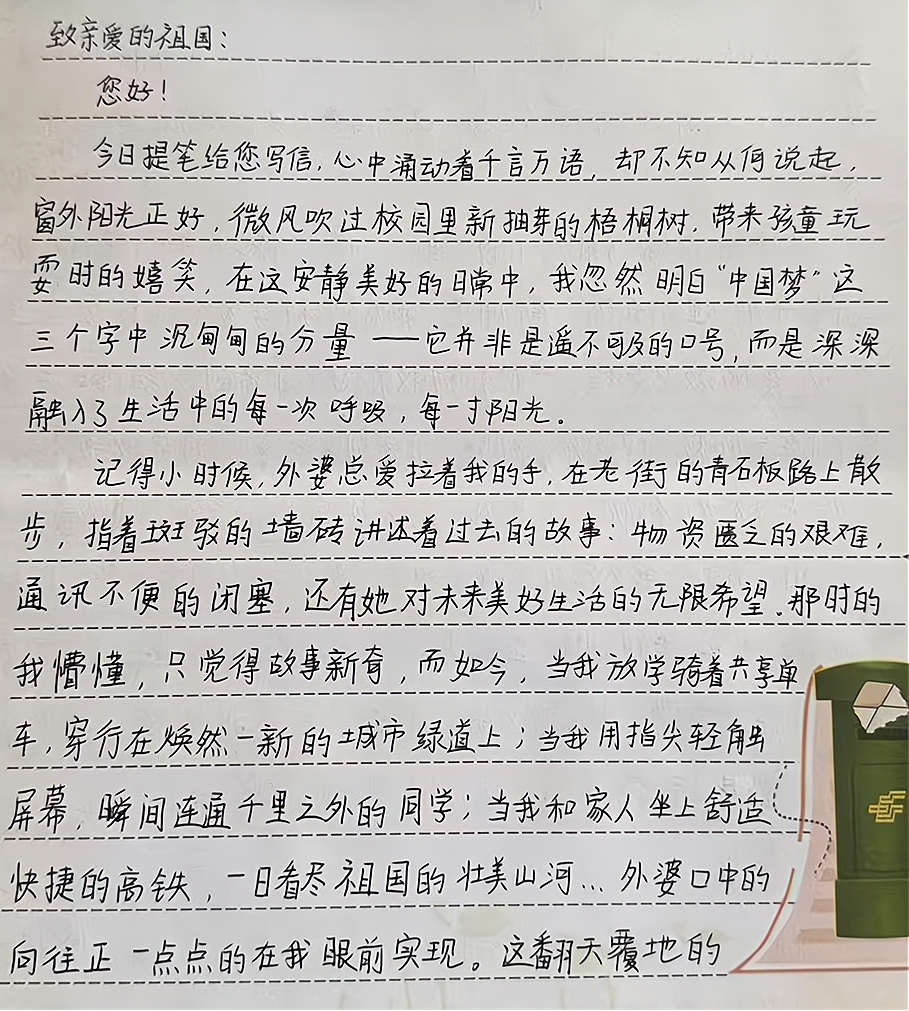 致亲爱的祖国：
您好！
今日提笔给您写信，心中涌动着千言万语，却不知从何说起，
窗外阳光正好，微风吹过校园里新抽芽的梧桐树，带来孩童玩
耍时的嬉笑，在这安静美好的日常中，我忽然明白“中国梦”这
三个字中沉甸甸的分量——它并非是遥不可及的口号，而是深深
融入了生活中的每一次呼吸，每一寸阳光。
记得小时候，外婆总爱拉着我的手，在老街的青石板路上散
步，指着斑驳的墙砖讲述着过去的故事：物资匮乏的艰难，
通讯不便的闭塞，还有她对未来美好生活的无限希望。那时的
我懵懂，只觉得故事新奇，而如今，当我放学骑着共享单
车，穿行在焕然一新的城市绿道上；当我用指尖轻触
屏幕，瞬间连通千里之外的同学；当我和家人坐上舒适
快捷的高铁，一日看尽祖国的壮美山河…外婆口中的
向往正一点点的在我眼前实现。这翻天覆地的